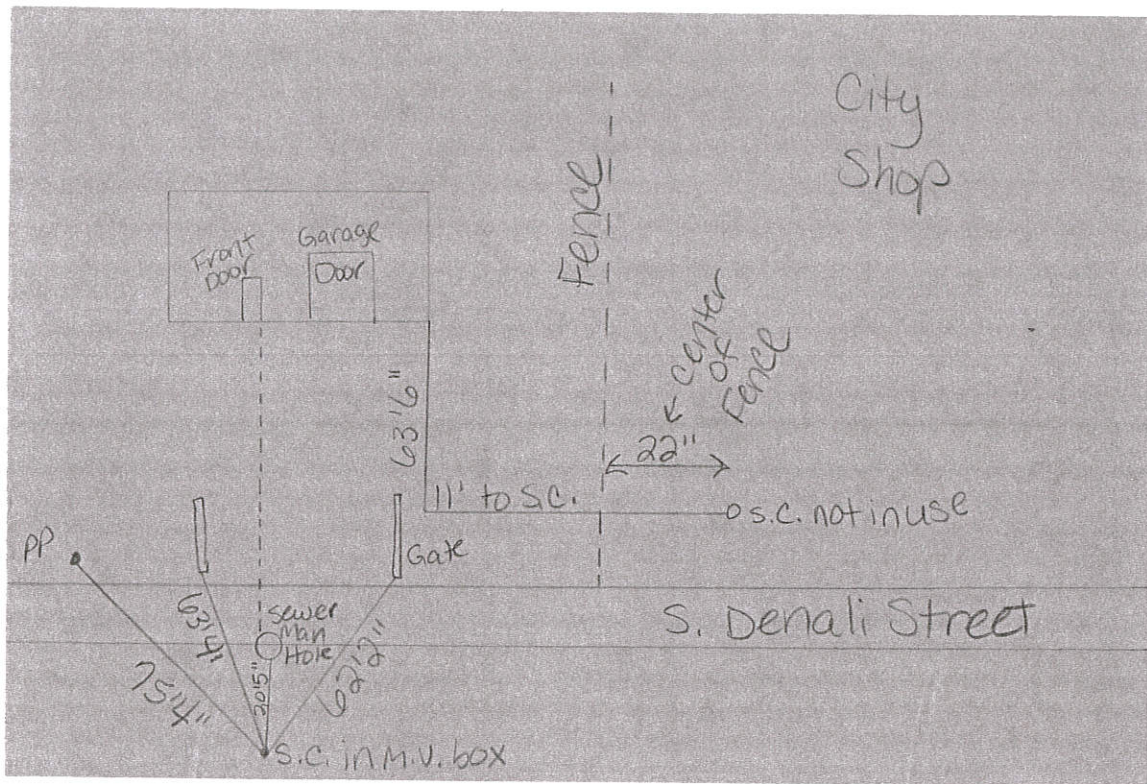 City
Shop
Fence
Front
Door
Garage
Door
← center
of
Fence
63'6"
22"
11' to S.C.
S.C. not in use
PP
Gate
S. Denali Street
63'4"
Sewer
Man
Hole
75'4"
62'2"
S.C. in M.V. box